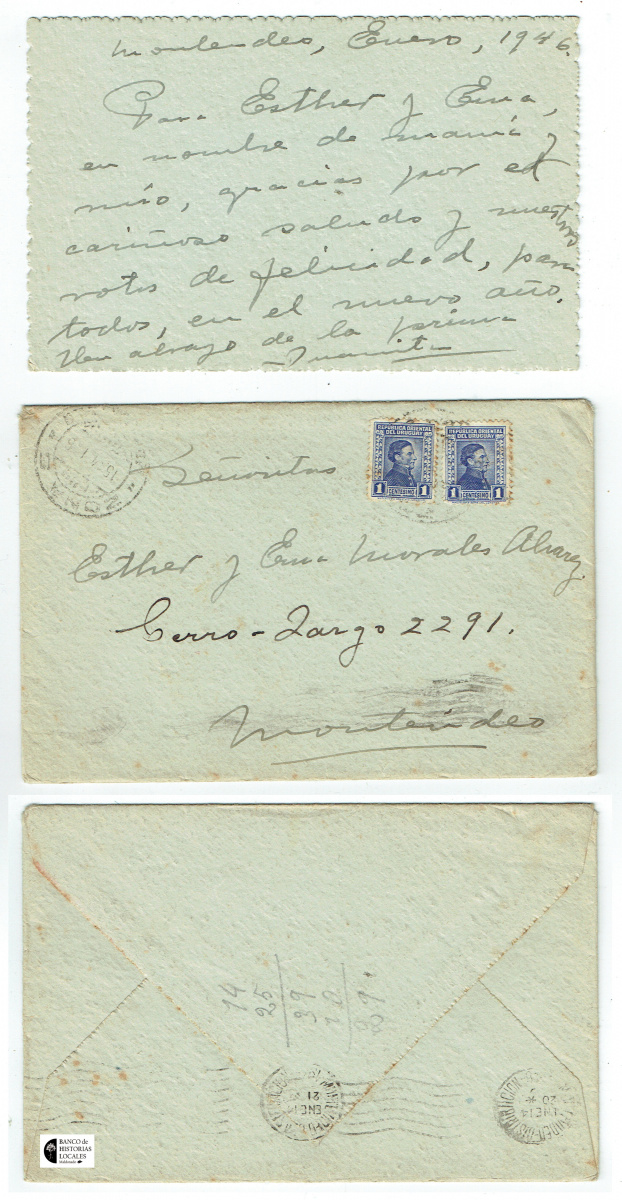 Montevideo, Enero, 1946.
Para Esther y Ema,
en nombre de mamá y
mío, gracias por el
cariñoso saludo y nuestros
votos de felicidad, para
todos, en el nuevo año.
Un abrazo de la prima
Juanita
REPUBLICA ORIENTAL
DEL URUGUAY
1 CENTESIMO 1
REPUBLICA ORIENTAL
DEL URUGUAY
1 CENTESIMO 1
Señoritas
Esther y Ema Morales Alvarez
Cerro-Largo 2291.
Montevideo
14
25
39
89.
ENE 14
21
ENE 14
20
BANCO de
HISTORIAS
LOCALES